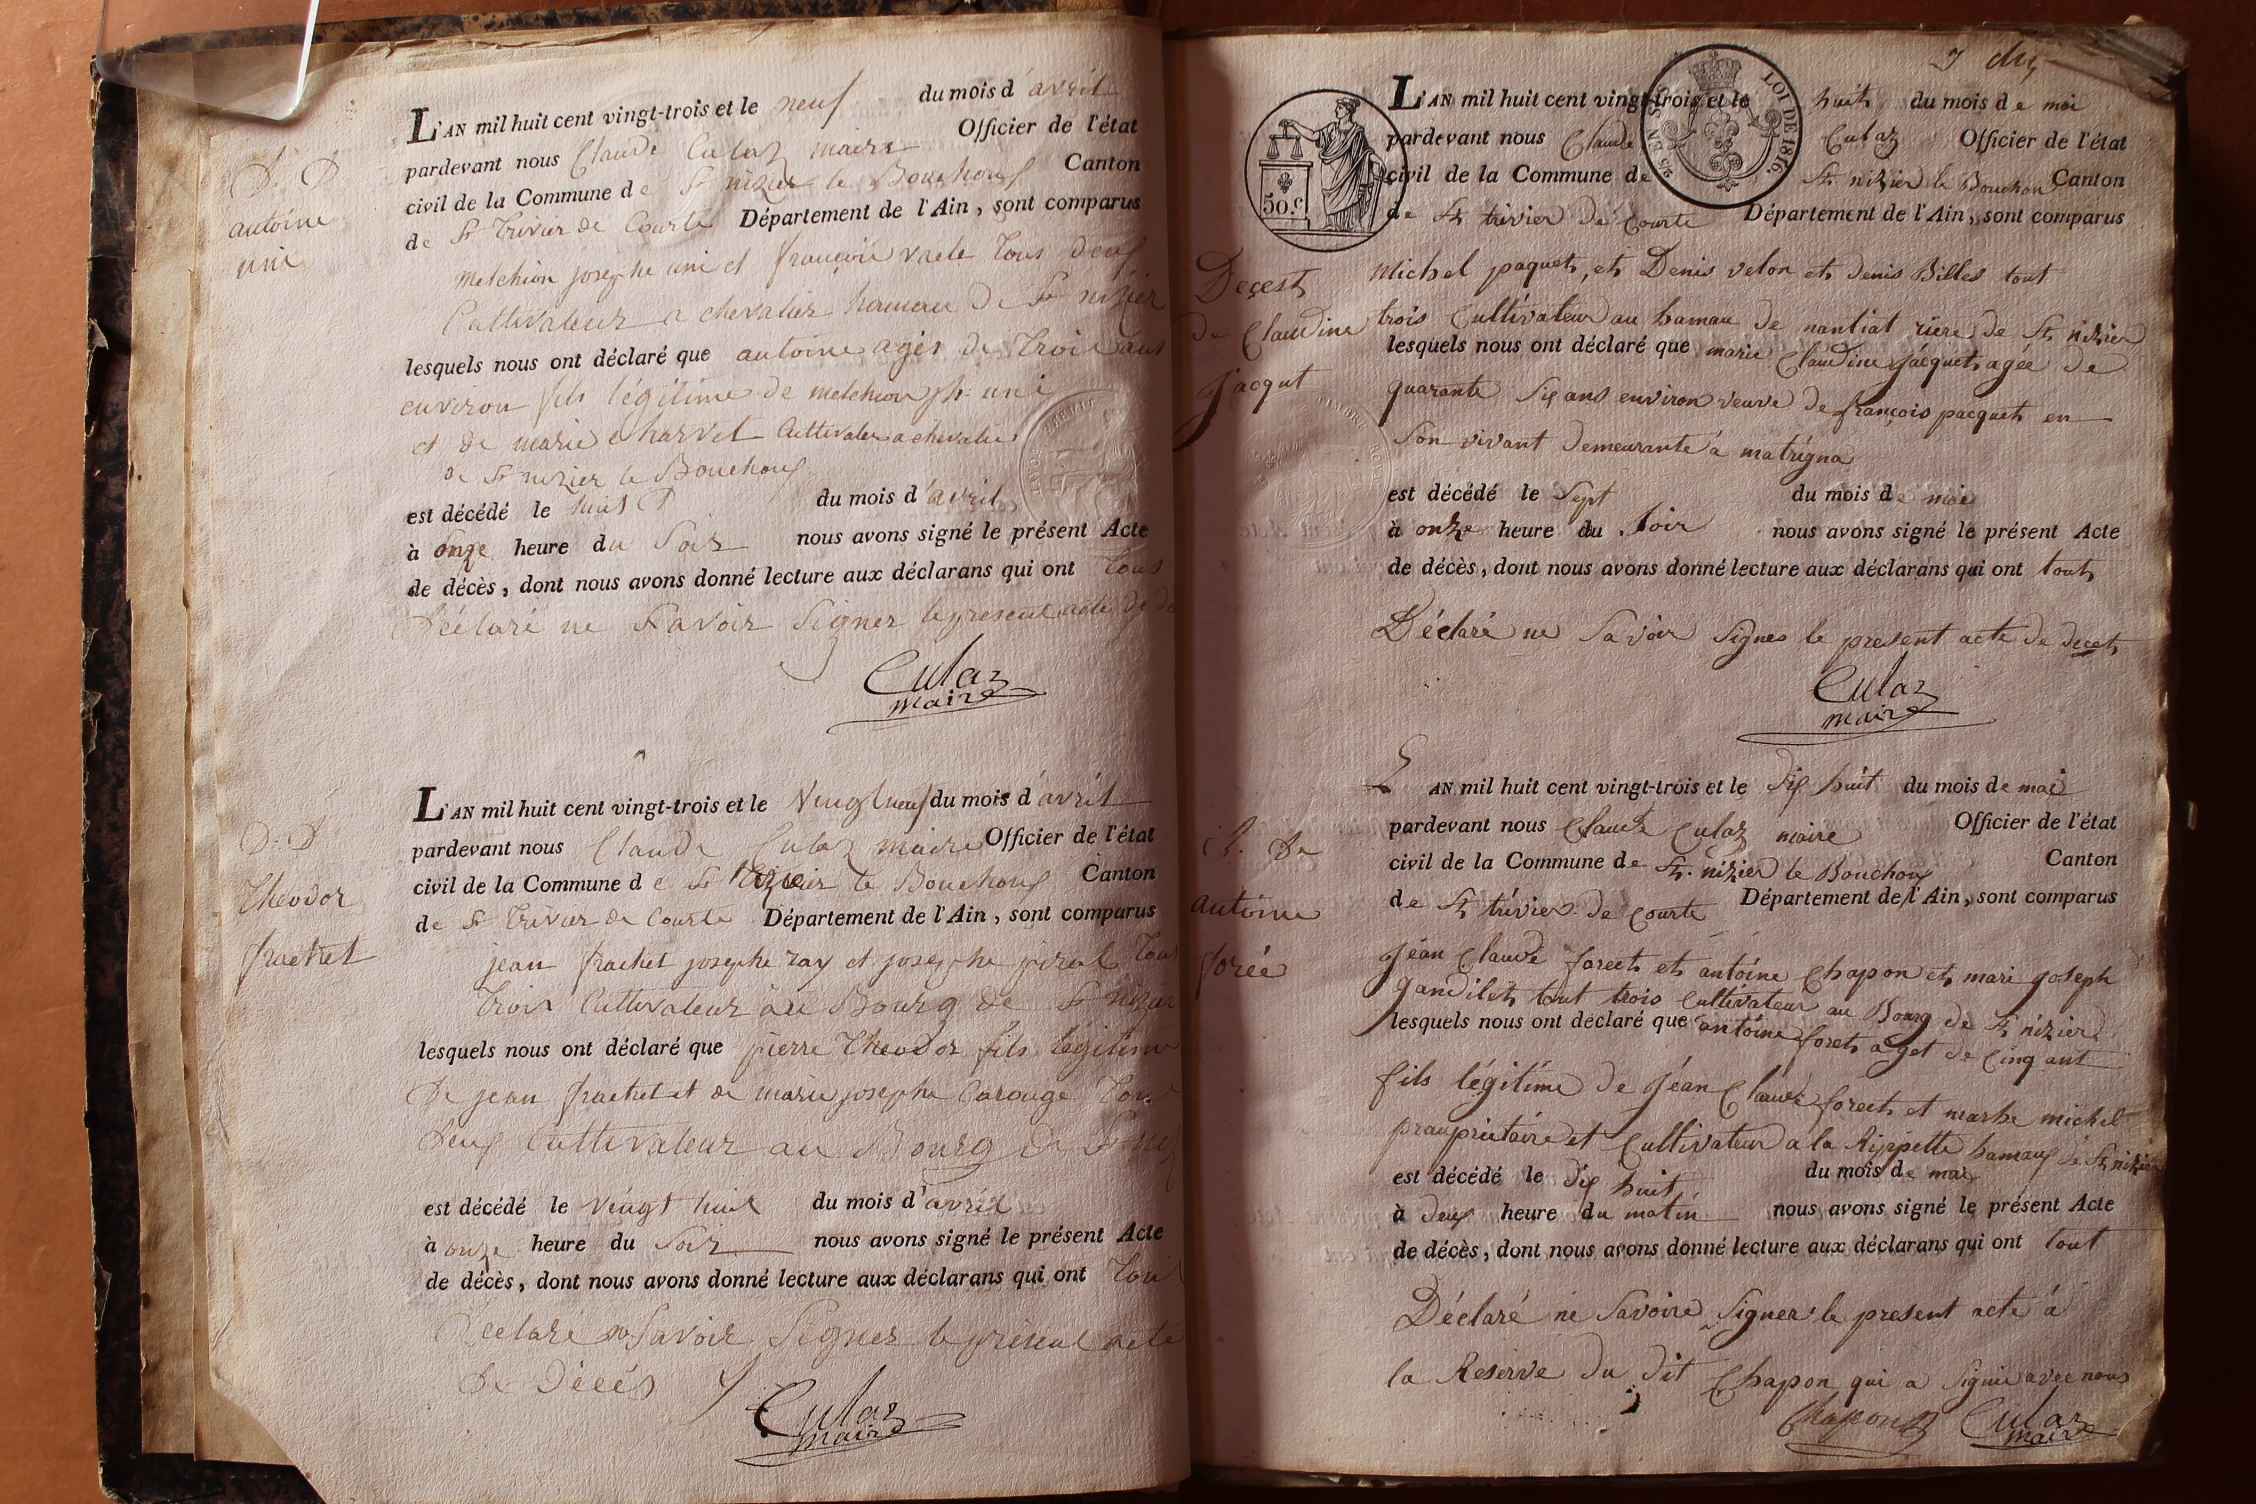 D. D
antoine
uni
L'AN mil huit cent vingt-trois et le neuf du mois d'avril
pardevant nous Claude Culaz maire Officier de l'état
civil de la Commune de St nizier le Bouchoux Canton
de St Trivier de Courte Département de l'Ain, sont comparus
melchion josephe uni et françois vacle Tous deux
Cultivateur a chevalier hameau de St nizier
lesquels nous ont déclaré que antoine agés de Trois ans
environ fils légitime de melchion jh uni
et de marie charvet Cultivateur a chevalier
de St nizier le Bouchoux
est décédé le huit du mois d'avril
à onze heure du Soir nous avons signé le présent Acte
de décès, dont nous avons donné lecture aux déclarans qui ont Tous
Déclaré ne Savoir Signer le present acte de
Culaz
maire
D. D
Theodor
frachet
L'AN mil huit cent vingt-trois et le Vingt neuf du mois d'avril
pardevant nous Claude Culaz maire Officier de l'état
civil de la Commune de St nizier le Bouchoux Canton
de St Trivier de Courte Département de l'Ain, sont comparus
jean frachet josephe ray et josephe pirat Tous
Trois Cultivateur au Bourg de St nizier
lesquels nous ont déclaré que pierre Theodor fils légitime
De jean frachet et de marie josephe Carouge Tous
deux Cultivateur au Bourg de St
est décédé le vingt huit du mois d'avril
à onze heure du Soir nous avons signé le présent Acte
de décès, dont nous avons donné lecture aux déclarans qui ont Tous
Déclaré ne Savoir Signer le present acte
De Décés
Culaz
maire
7
50.c
25 EN SUS
LOI DE 1816.
Deçest
de Claudine
Jacqut
L'AN mil huit cent vingt-trois et le huit du mois de mai
pardevant nous Claude Culaz Officier de l'état
civil de la Commune de St nizier le Bouchou Canton
de St trivier de Courte Département de l'Ain, sont comparus
Michel paquet, et Denis velon et denis Billes tout
trois Cultivateur au hamau de nantiat riere de St nizier
lesquels nous ont déclaré que marie Claudine Jacquet agée de
quarante Six ans environ veuve de françois pacquet en
Son vivant demeurante à matrigna
est décédé le Sept du mois de mai
à onze heure du Soir nous avons signé le présent Acte
de décès, dont nous avons donné lecture aux déclarans qui ont tout
Déclaré ne Savoir Signer le present acte de decet
Culaz
maire
antoine
forée
L'AN mil huit cent vingt-trois et le dix huit du mois de mai
pardevant nous Claude Culaz maire Officier de l'état
civil de la Commune de St. nizier le Bouchoux Canton
de St trivier de Courte Département de l'Ain, sont comparus
Jean Claude foreet et antoine Chapon et mari Joseph
gandilet tout trois Cultivateur au Bourg de St nizier
lesquels nous ont déclaré que antoine foret aget de cinq ant
fils légitime de Jéan Claude foreet et marhe michel
prauprietaire et Cultivateur a la Rippette hamaux de St nizier
est décédé le dix huit du mois de mai
à deux heure du matin nous avons signé le présent Acte
de décès, dont nous avons donné lecture aux déclarans qui ont tout
Déclaré ne Savoire Signer le present acte à
la Reserve du dit Chapon qui a Signé avec nous
Chapon Culaz
maire